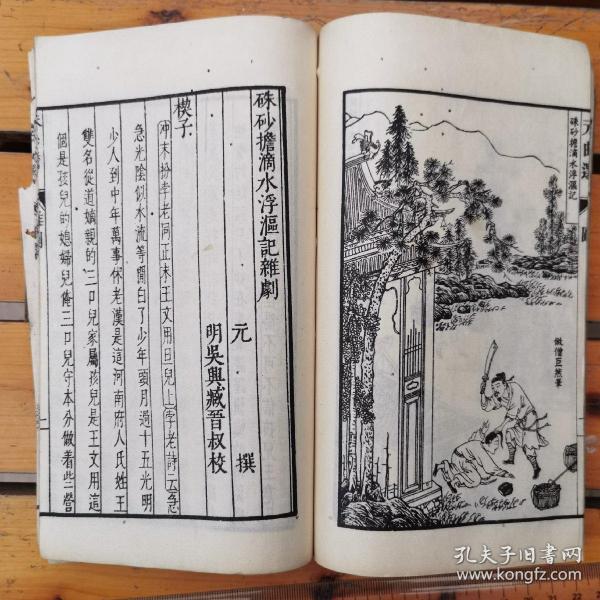 元曲選
圖
硃砂擔滴水浮漚記
倣僧巨然筆
硃砂擔滴水浮漚記雜劇
元 撰
明吳興臧晉叔校
楔子
冲末扮孛老同正末王文用旦兒上孛老詩云急
急光陰似水流等閒白了少年頭月過十五光明
少人到中年萬事休老漢是這河南府人氏姓王
雙名從道嫡親的三口兒家屬孩兒是王文用這
個是孩兒的媳婦兒俺三口兒守本分做着些營
孔夫子旧书网
www.kongfz.com